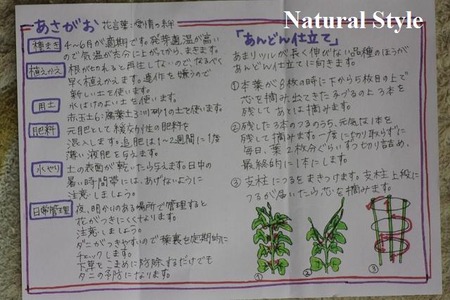 Natural Style
あさがお 花言葉…愛情の絆
種まき 4〜6月が適期です。発芽適温が高い
ので気温が充分に上がってから、まきます。
植えかえ 根がきれると再生しないので、なるべく
早く植えかえます。連作を嫌うので
新しい土を使います。
用土 水はけのよい土を使います。
赤玉土6:腐葉土3:川砂1の土を使います。
肥料 元肥として緩効性の肥料を
混入します。追肥は1〜2週間に1度
薄い液肥を与えます。
水やり 土の表面が乾いたら与えます。日中の
暑い時間帯には、あげないように
注意しましょう。
日常管理 夜、明かりのある場所で管理すると
花がつきにくくなります。
注意しましょう。
ダニがつきやすいので葉裏も定期的に
チェックします。
下葉をこまめに防除するだけでも
ダニの予防になります。
「あんどん仕立て」
あまりツルが長く伸びない品種のほうが
あんどん仕立てに向きます。
①本葉が8枚の時に下から5枚目の上で
芯を摘み出てきた子づるのよう3本を
残してあとは摘みます。
②残した3本のつるのうち、元気な1本を
残して摘みます。一度に切り取らずに
毎日、葉2枚分ぐらいずつ切り詰め、
最終的に1本にします。
③支柱につるをまきつけます。支柱上段に
つるが届いたら芯を摘みます。
① ② ③